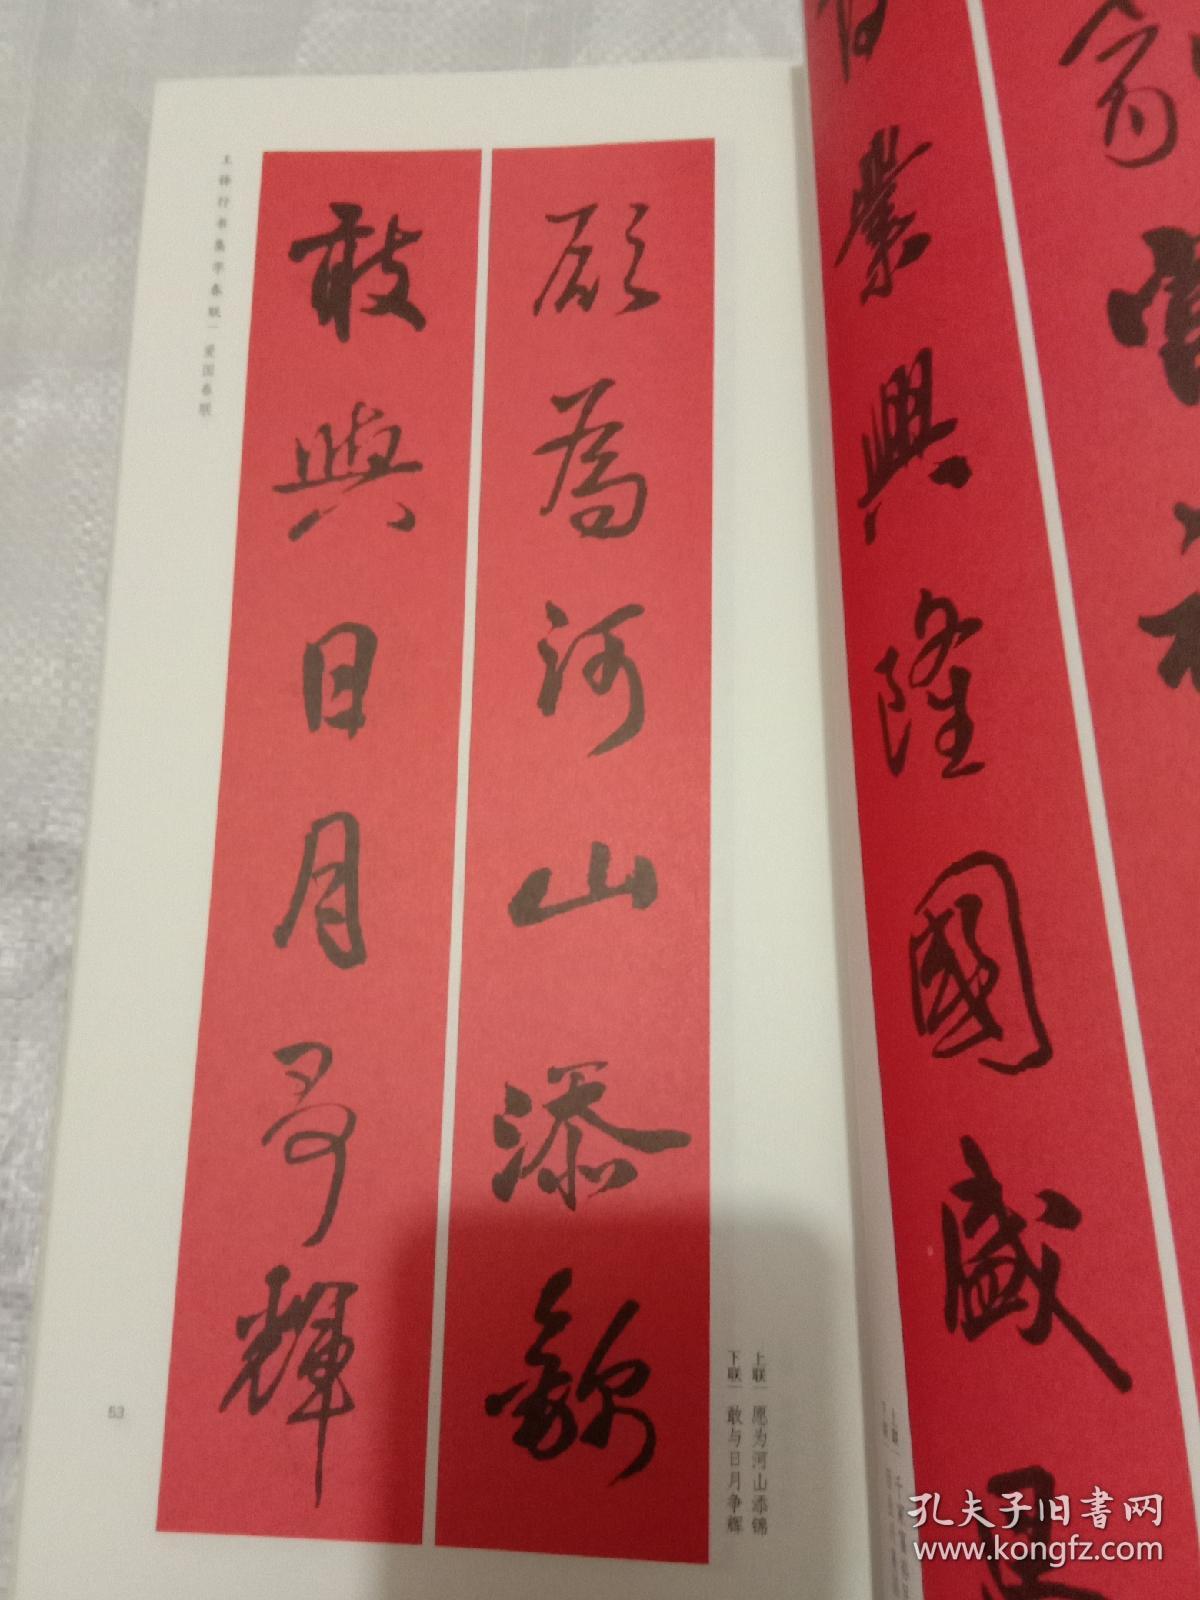 愛国春联
願為河山添錦
敢與日月爭輝
上联｜愿为河山添锦
下联｜敢与日月争辉
53
業興隆國盛
孔夫子旧书网
www.kongfz.com